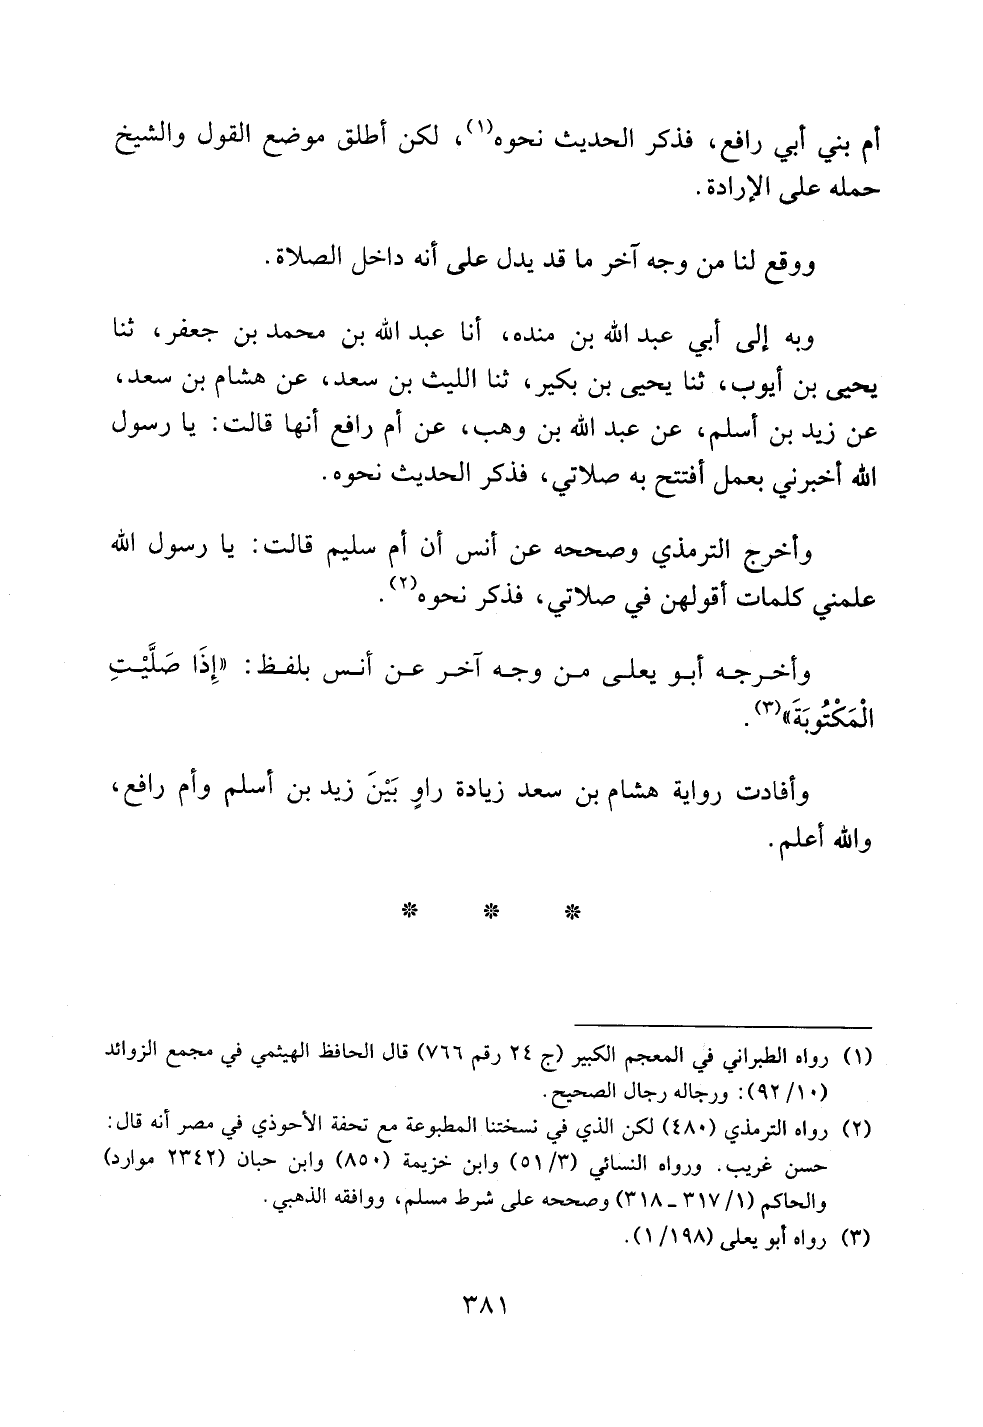 أم بني أبي رافع، فذكر الحديث نحوه(١)، لكن أطلق موضع القول والشيخ
حمله على الإرادة.
ووقع لنا من وجه آخر ما قد يدل على أنه داخل الصلاة.
وبه إلى أبي عبد الله بن منده، أنا عبد الله بن محمد بن جعفر، ثنا
يحيى بن أيوب، ثنا يحيى بن بكير، ثنا الليث بن سعد، عن هشام بن سعد،
عن زيد بن أسلم، عن عبد الله بن وهب، عن أم رافع أنها قالت: يا رسول
الله أخبرني بعمل أفتتح به صلاتي، فذكر الحديث نحوه.
وأخرج الترمذي وصححه عن أنس أن أم سليم قالت: يا رسول الله
علمني كلمات أقولهن في صلاتي، فذكر نحوه(٢).
وأخرجه أبو يعلى من وجه آخر عن أنس بلفظ: «إِذَا صَلَّيْتِ
الْمَكْتُوبَةَ»(٣).
وأفادت رواية هشام بن سعد زيادة راوٍ بَيْنَ زيد بن أسلم وأم رافع،
والله أعلم.
* * *
(١) رواه الطبراني في المعجم الكبير (ج ٢٤ رقم ٧٦٦) قال الحافظ الهيثمي في مجمع الزوائد
(٩٢/١٠): ورجاله رجال الصحيح.
(٢) رواه الترمذي (٤٨٠) لكن الذي في نسختنا المطبوعة مع تحفة الأحوذي في مصر أنه قال:
حسن غريب. ورواه النسائي (٥١/٣) وابن خزيمة (٨٥٠) وابن حبان (٢٣٤٢ موارد)
والحاكم (٣١٧/١ ـ ٣١٨) وصححه على شرط مسلم، ووافقه الذهبي.
(٣) رواه أبو يعلى (١/١٩٨).
٣٨١